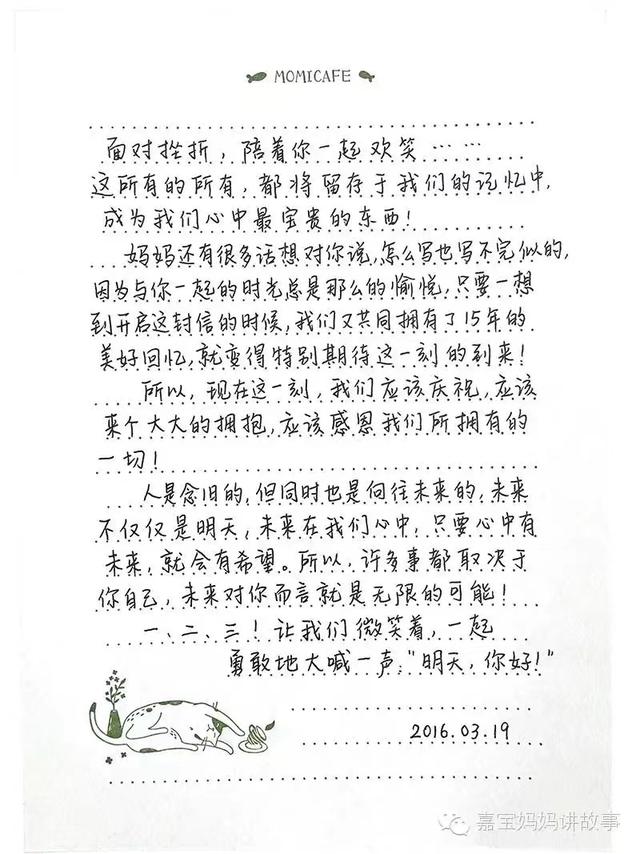 MOMICAFE
面对挫折，陪着你一起欢笑……
这所有的所有，都将留存于我们的记忆中，
成为我们心中最宝贵的东西！
妈妈还有很多话想对你说，怎么写也写不完似的，
因为与你一起的时光总是那么的愉悦，只要一想
到开启这封信的时候，我们又共同拥有了15年的
美好回忆，就变得特别期待这一刻的到来！
所以，现在这一刻，我们应该庆祝，应该
来个大大的拥抱，应该感恩我们所拥有的
一切！
人是念旧的，但同时也是向往未来的，未来
不仅仅是明天，未来在我们心中，只要心中有
未来，就会有希望。所以，许多事都取决于
你自己，未来对你而言就是无限的可能！
一、二、三！让我们微笑着，一起
勇敢地大喊一声：“明天，你好！”
2016.03.19
嘉宝妈妈讲故事